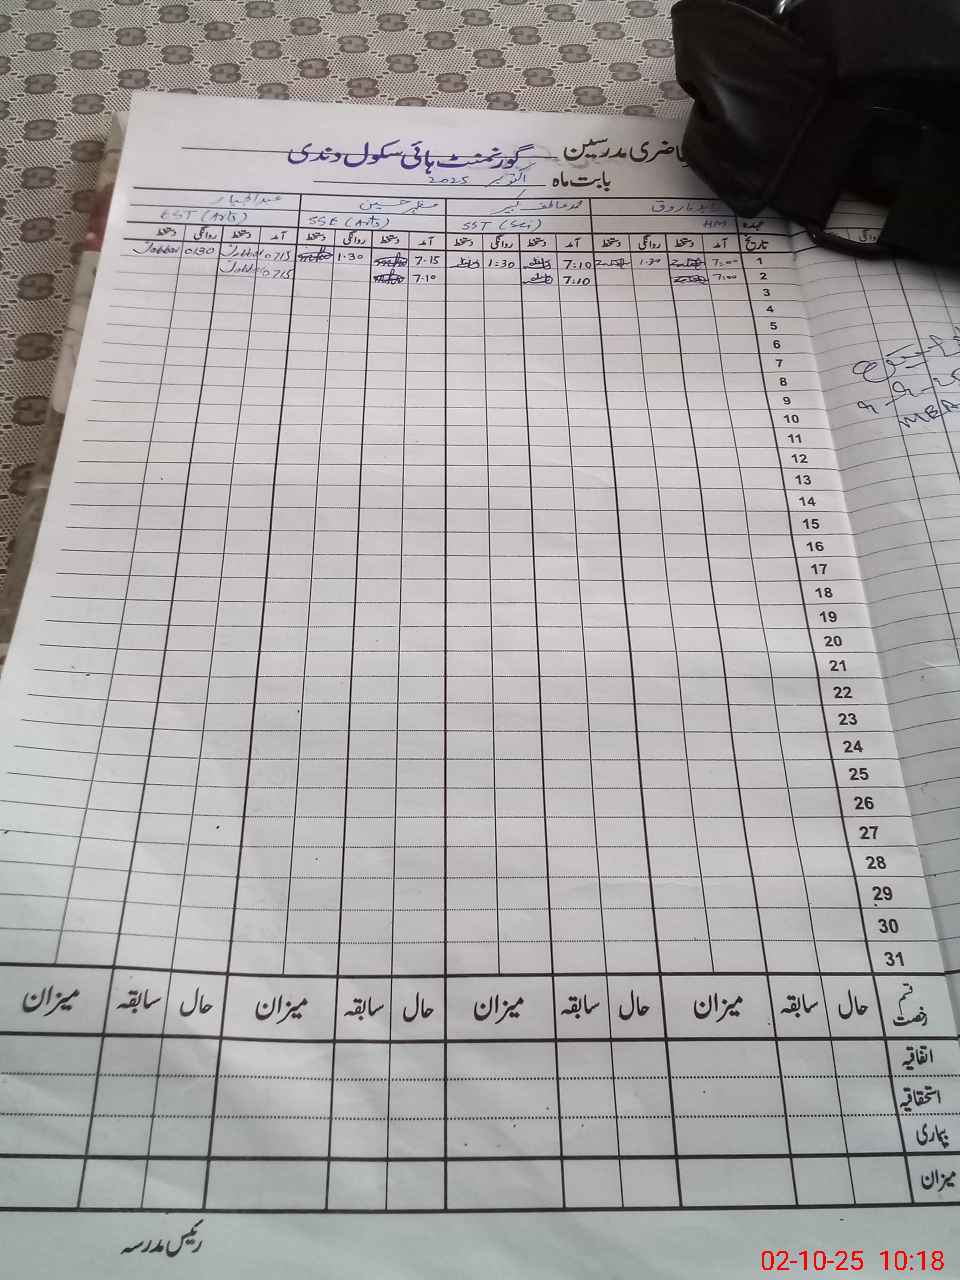 حاضری مدرسین گورنمنٹ ہائی سکول دندی
بابت ماہ اکتوبر 2025
فاروق محمد عاطف صغیر حسین عبدالجبار
عہدہ HM SST (Sci) SSE (Arts) EST (Arts)
تاریخ آمد دستخط روانگی دستخط آمد دستخط روانگی دستخط آمد دستخط روانگی دستخط آمد دستخط روانگی دستخط
1 7:00 1:30 7:10 1:30 7.15 1.30 0715 Jabbar 0130 Jabbar
2 7:00 7:10 7.10 0715 Jabbar
3
4
5
6
7
8
9
10
11
12
13
14
15
16
17
18
19
20
21
22
23
24
25
26
27
28
29
30
31
قسم رخصت حال سابقہ میزان حال سابقہ میزان حال سابقہ میزان حال سابقہ میزان
اتفاقیہ
استحقاقیہ
بیماری
میزان
رئیس مدرسہ
02-10-25 10:18